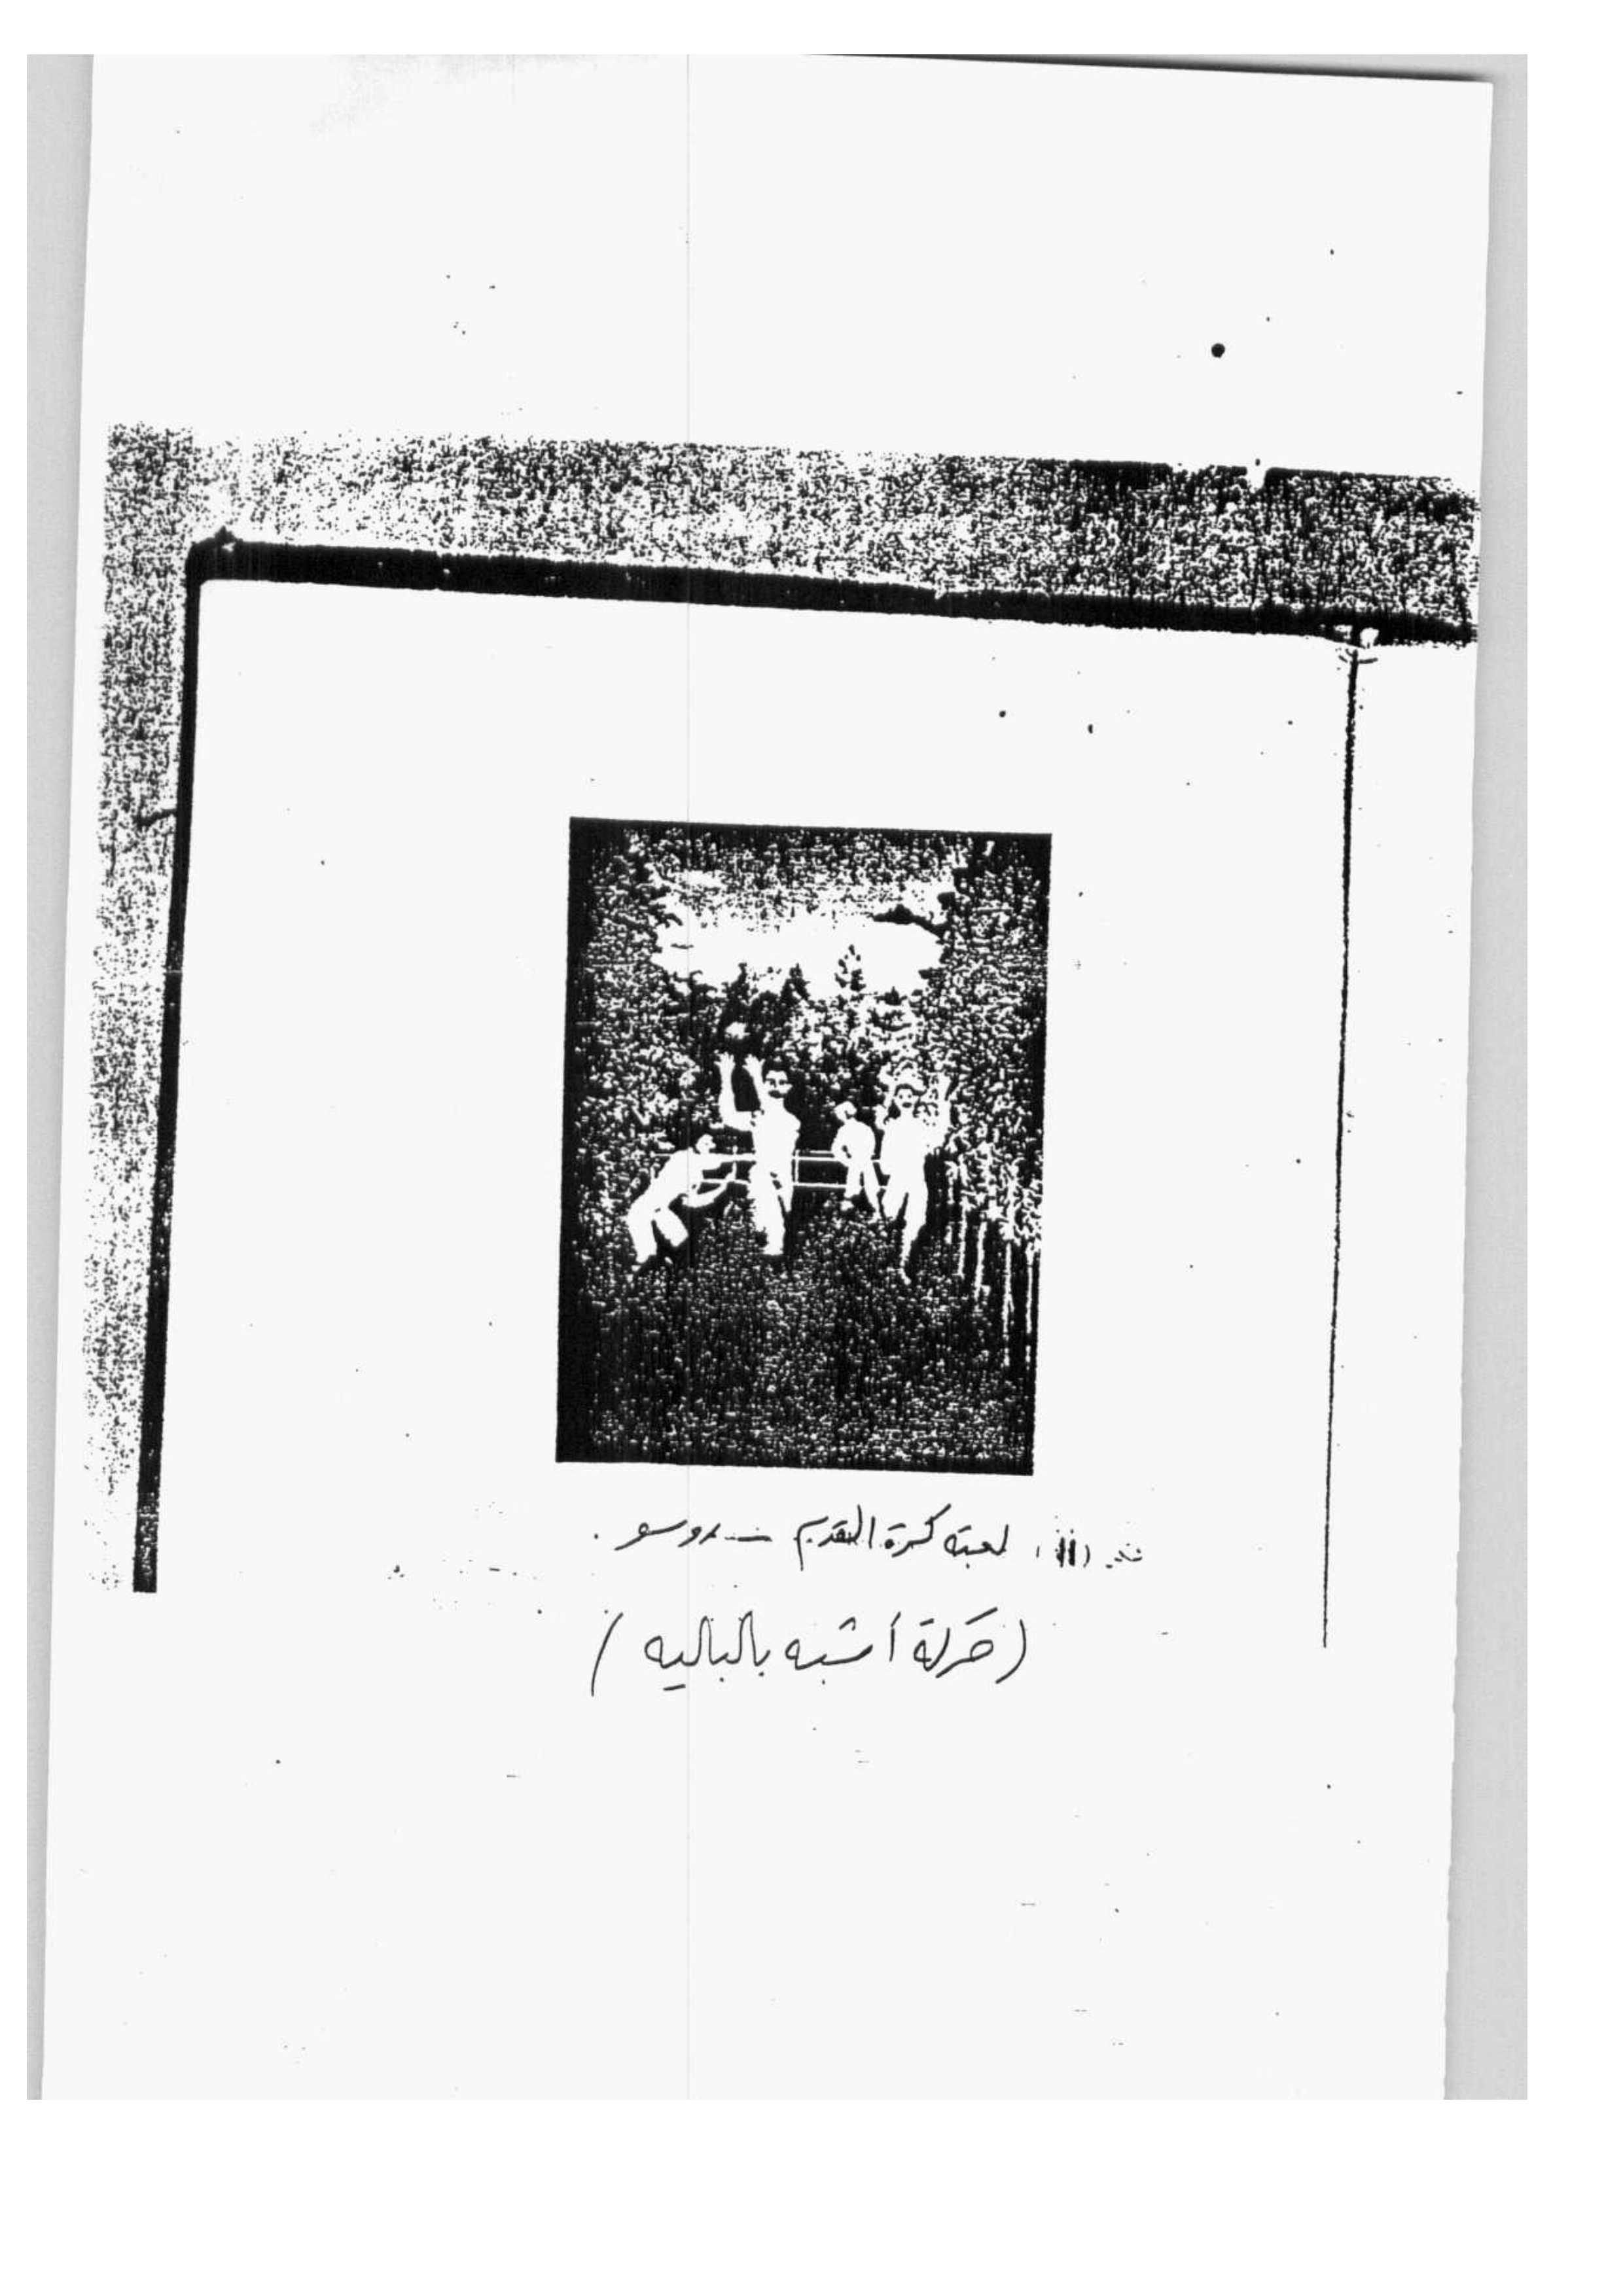 (11) لعبة كرة القدم - روسو .
(حركة أشبه بالباليه)